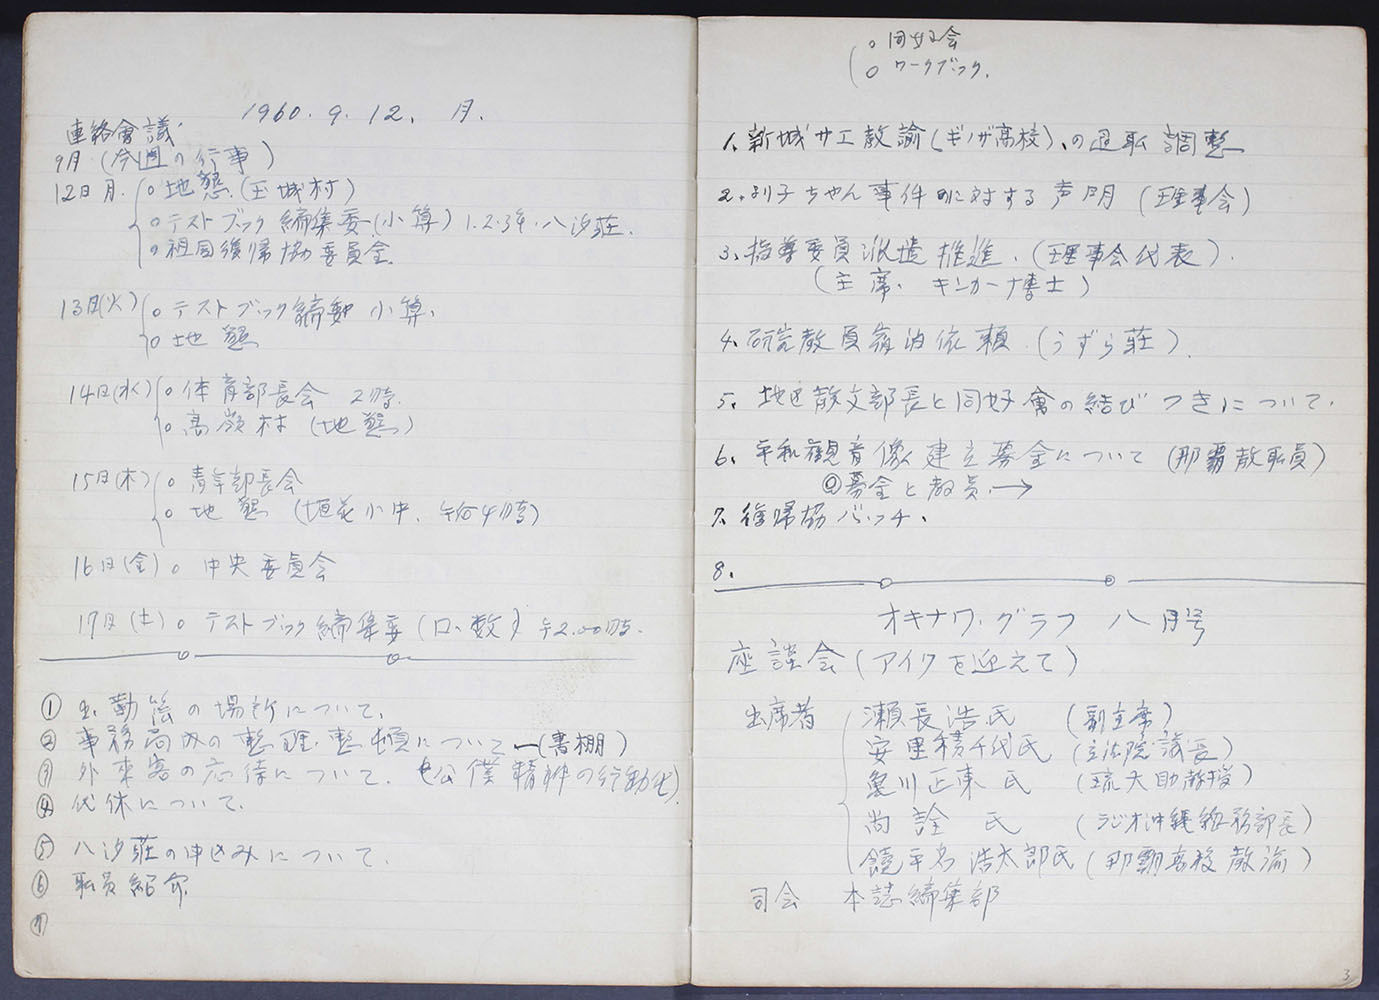 1960. 9. 12. 月.
連絡會議.
9月 (今週の行事)
12日月. ○ 地懇. (玉城村)
○ テストブック編集委 (小算) 1.2.3年. 八汐荘.
○ 祖国復帰協委員会
13日(火) ○ テストブック編 小算.
○ 地懇
14日(水) ○ 体育部長会 2時.
○ 高嶺村 (地懇)
15日(木) ○ 青年部長会
○ 地懇 (垣花小中. 午后4時)
16日(金) ○ 中央委員会
17日(土) ○ テストブック編集委 (口、数) 午2.00時.
① 出勤簿の場所について.
② 事務局内の整理.整頓について (書棚)
③ 外来客の応待について. (公僕精神の行動化)
④ 代休について.
⑤ 八汐荘の申込みについて.
⑥ 職員紹介
⑦
○ 同好会
○ ワークブック.
1. 新城サエ教諭 (ギノザ高校)、の退職調整
2. よリ子ちゃん事件に対する声明 (理事会)
3. 指導委員派遣推進. (理事会代表).
(主席. キンカーナ博士)
4. 研究教員宿泊依頼 (うずら荘).
5. 地区教文部長と同好會の結びつきについて.
6. 平和観音像建立募金について (那覇教職員)
◎募金と教員. →
7. 復帰協バッチ.
8.
オキナワ.グラフ 八月号
座談会 (アイクを迎えて)
出席者 瀬長浩氏 (副主席)
安里積千代氏 (立法院議長)
亀川正東氏 (琉大助教授)
尚詮氏 (ラジオ沖縄総務部長)
饒平名浩太郎氏 (那覇高校教諭)
司会 本誌編集部
3